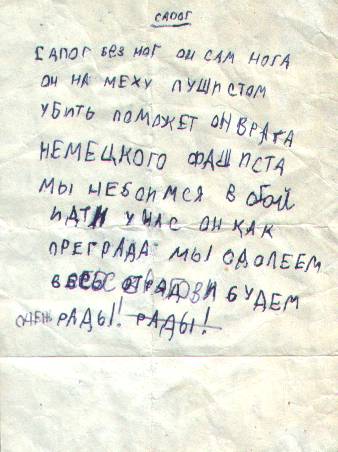 САПОГ
САПОГ БЕЗ НОГ ОН САМ НОГА
ОН НА МЕХУ ПУШИСТОМ
УБИТЬ ПОМОЖЕТ ОН ВРАГА
НЕМЕЦКОГО ФАШИСТА
МЫ НЕБОИМСЯ В БОЙ
ИДТИ У НАС ОН КАК
ПРЕГРАДА МЫ ОДОЛЕЕМ
ВЕСЬ ОТРЯД И БУДЕМ
РАДЫ! РАДЫ!